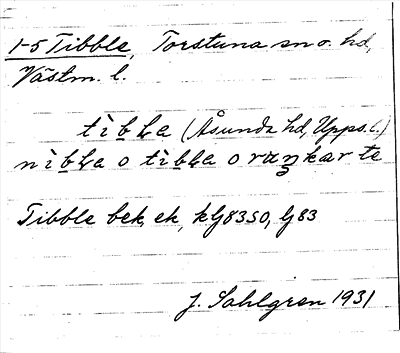 1-5 Tibble, Torstuna sn o. hd,
Västm. l.
tìbḷa (Åsunda hd, Upps. l.)
nìbḷa o tìbḷa o raŋkar te
Tibble bek, ek, klj8350, lj83
J. Sahlgren 1931